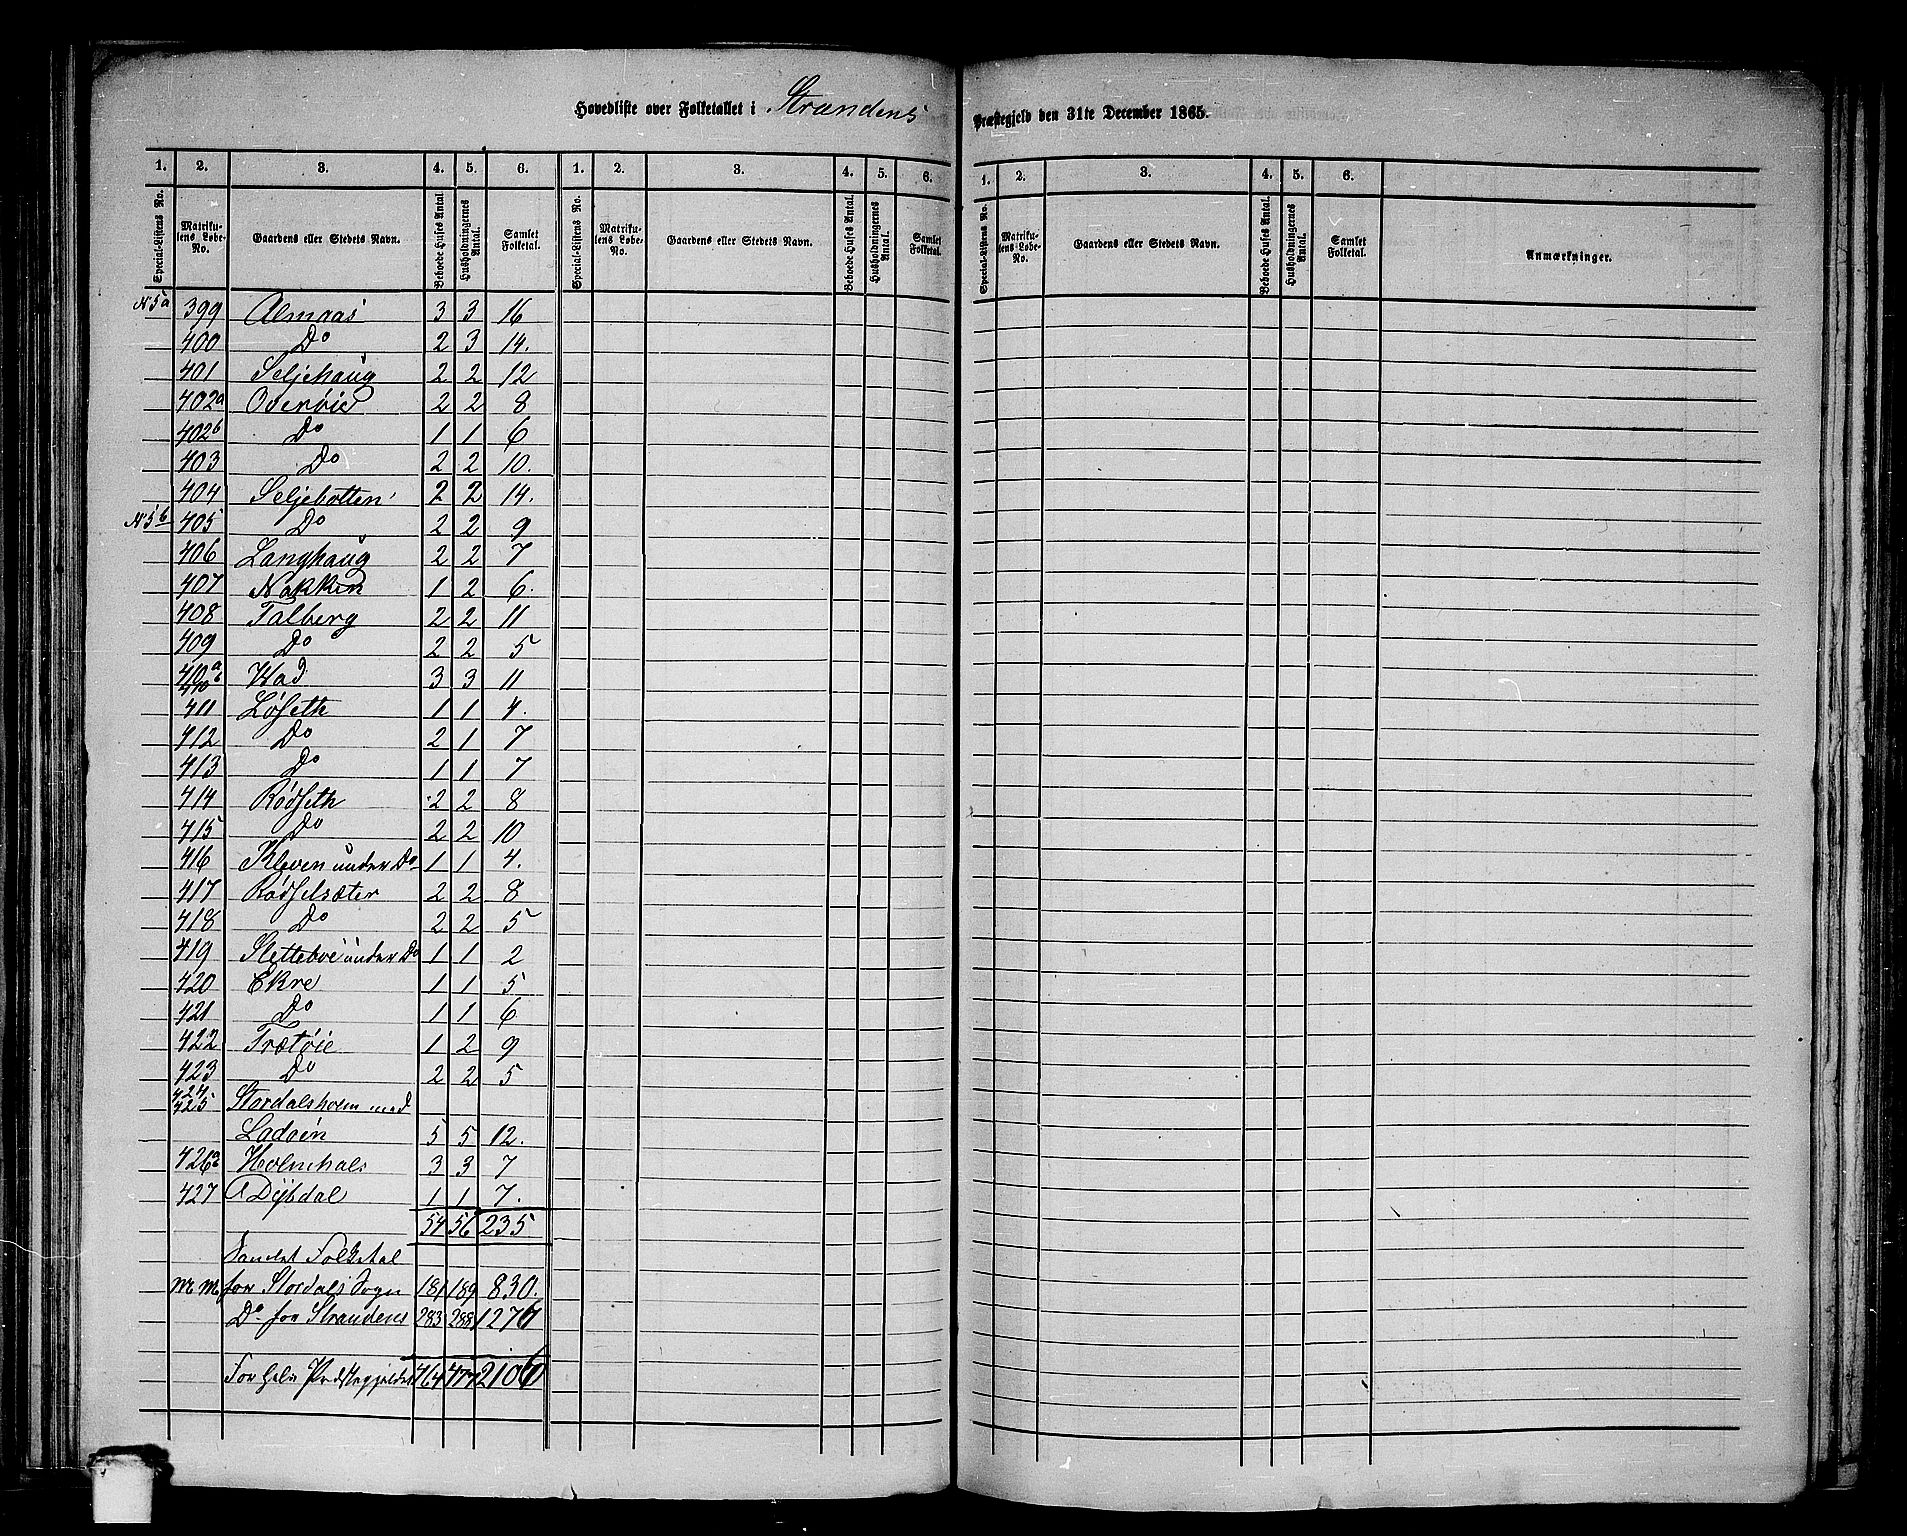 Hovedliste over Folketallet i Strandens Præstegjeld den 31te December 1865.
1. 2. 3. 4. 5. 6. 1. 2. 3. 4. 5. 6. 1. 2. 3. 4. 5. 6.
Special-Listens No. Matrikulens Løbe-No. Gaardens eller Stedets Navn. Beboede Huses Antal. Husholdningernes Antal. Samlet Folketal. Special-Listens No. Matrikulens Løbe-No. Gaardens eller Stedets Navn. Beboede Huses Antal. Husholdningernes Antal. Samlet Folketal. Special-Listens No. Matrikulens Løbe-No. Gaardens eller Stedets Navn. Beboede Huses Antal. Husholdningernes Antal. Samlet Folketal. Anmærkninger.
N 5a 399 Almaas 3 3 16
400 Do 2 3 14.
401 Seljehaug 2 2 12
402a Overøie 2 2 8
402b Do 1 1 6
403 Do 2 2 10.
404 Seljebotten 2 2 14.
N 5b 405 Do 2 2 9
406 Langhaug 2 2 7
407 Nakken 1 2 6.
408 Talberg 2 2 11
409 Do 2 2 5
410a 410b Vad 3 3 11
411 Løseth 1 1 4.
412 Do 2 1 7
413 Do 1 1 7
414 Rødseth 2 2 8
415 Do 2 2 10
416 Kleven under Do 1 1 4.
417 Rødselsæter 2 2 8
418 Do 2 2 5
419 Slettebøe under Do 1 1 2
420 Ekre 1 1 5
421 Do 1 1 6
422 Trætøie 1 2 9
423 Do 2 2 5
424 425 Stordalsholm med
Ladøen 5 5 12.
426a Holmhals 3 3 7
427 Dybdal 1 1 7.
54 56 235
Samlet Folketal
for Stordals Sogn 181 189 830.
Do for Strandens 283 288 1276
For hele Præstegjeldet 464 477 2106